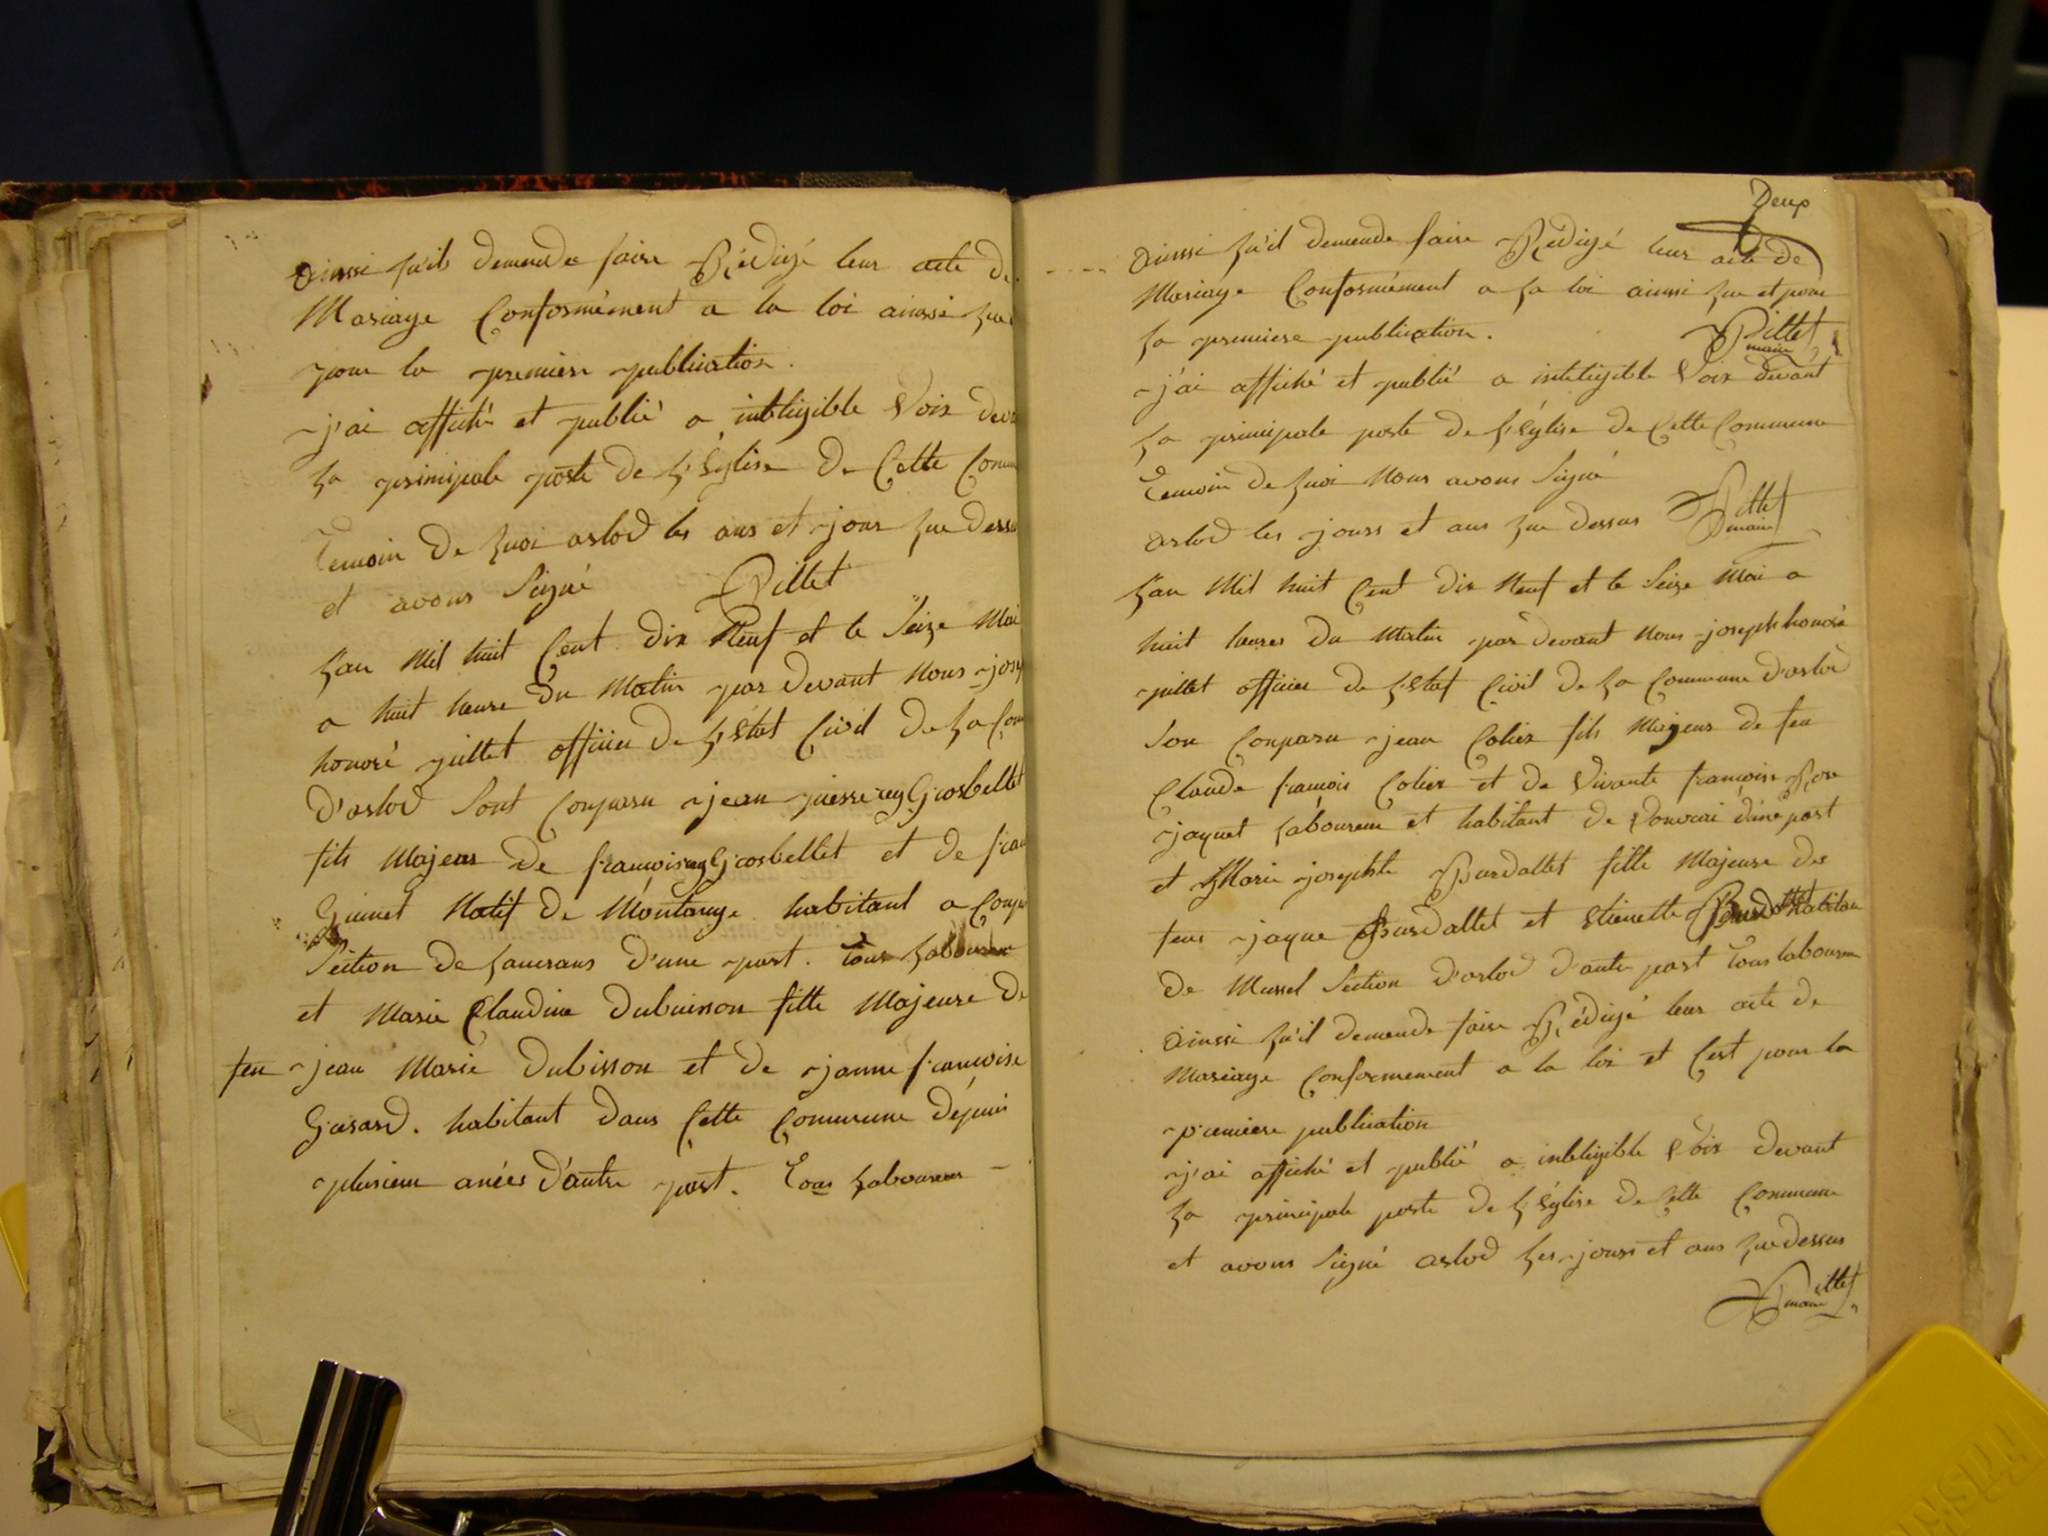 ainssi qu'ils demende faire Rédigé leur acte de
Mariage Conformément a la loi ainssi que
pour la premiere publication.
j'ai affiché et publié a intteligible Voix deva
la principale porte de l'Eglise de Cette Comm
Temoin de quoi arlod les ans et jour que dessu
et avons Signé Pillet
L'an Mil huit Cent dix Neuf et le Seize Mai
a huit heure du Matin par devant Nous jose
honoré pillet officier de l'Etat Civil de La Com
d'arlod Sont Conparu jean pierre rey Grosbellet
fils Majeur de françois rey Grosbellet et de fran
Guinet Natif de Montange habitant a
Section de Lancrans d'une part. Tous Laboureur
et Marie Claudine Dubuisson fille Majeure de
feu jean Marie Dubisson et de janne françoise
Girard. habitant dans Cette Commune dépuis
plusieur anées d'autre part. Tous Laboureurs
Deux
ainssi qu'il demende faire Rédigé leur acte de
Mariage Conformément a La loi ainssi que et pour
La premiere publication. Pillet
maire
j'ai affiché et publié a inteligible Voix devant
La principale porte de L'Eglise de Cette Commune
Temoin de quoi Nous avons Signé
arlod les jours et ans que dessus Pillet
maire
L'an Mil huit Cent dix Neuf et le Seize Mai a
huit heures du Matin par devant Nous joseph honoré
pillet officier de L'Etat Civil de La Commune d'arlod
Son Conparu jean Colier fils Majeur de feu
Claude françois Colier et de Vivante françoise
jaquet Laboureur et habitant de Vouvrai d'une part
et Marie josephte Burdallet fille Majeure des
feus jaque Burdallet et Etienette habitan
de Mussel Section d'arlod d'autre part Tous laboureur
ainssi qu'il demende faire Rédigé leur acte de
Mariage Conformement a la loi et C'est pour la
premiere publication
j'ai affiché et publié a inteligible Voix devant
La principale porte de L'Eglise de Cette Commune
et avons Signé arlod Les jours et ans que dessus
Pillet
maire